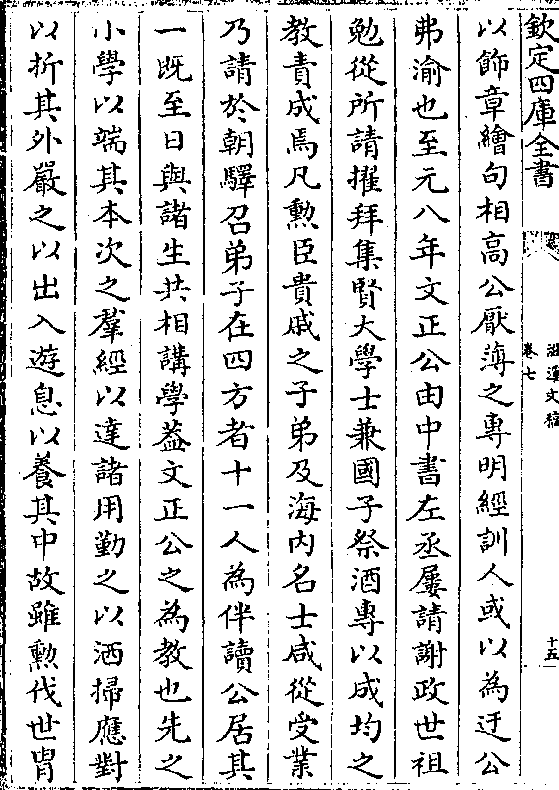 欽定四庫全書
滋溪文稿
卷七
十五
以飾章繪句相高公厭薄之專明經訓人或以為迂公
弗渝也至元八年文正公由中書左丞屢請謝政世祖
勉從所請擢拜集賢大學士兼國子祭酒專以成均之
教責成焉凡勲臣貴戚之子弟及海内名士咸從受業
乃請於朝驛召弟子在四方者十一人為伴讀公居其
一既至日與諸生共相講學葢文正公之為教也先之
小學以端其本次之羣經以達諸用勤之以洒掃應對
以折其外嚴之以出入遊息以養其中故雖勲伐世胄